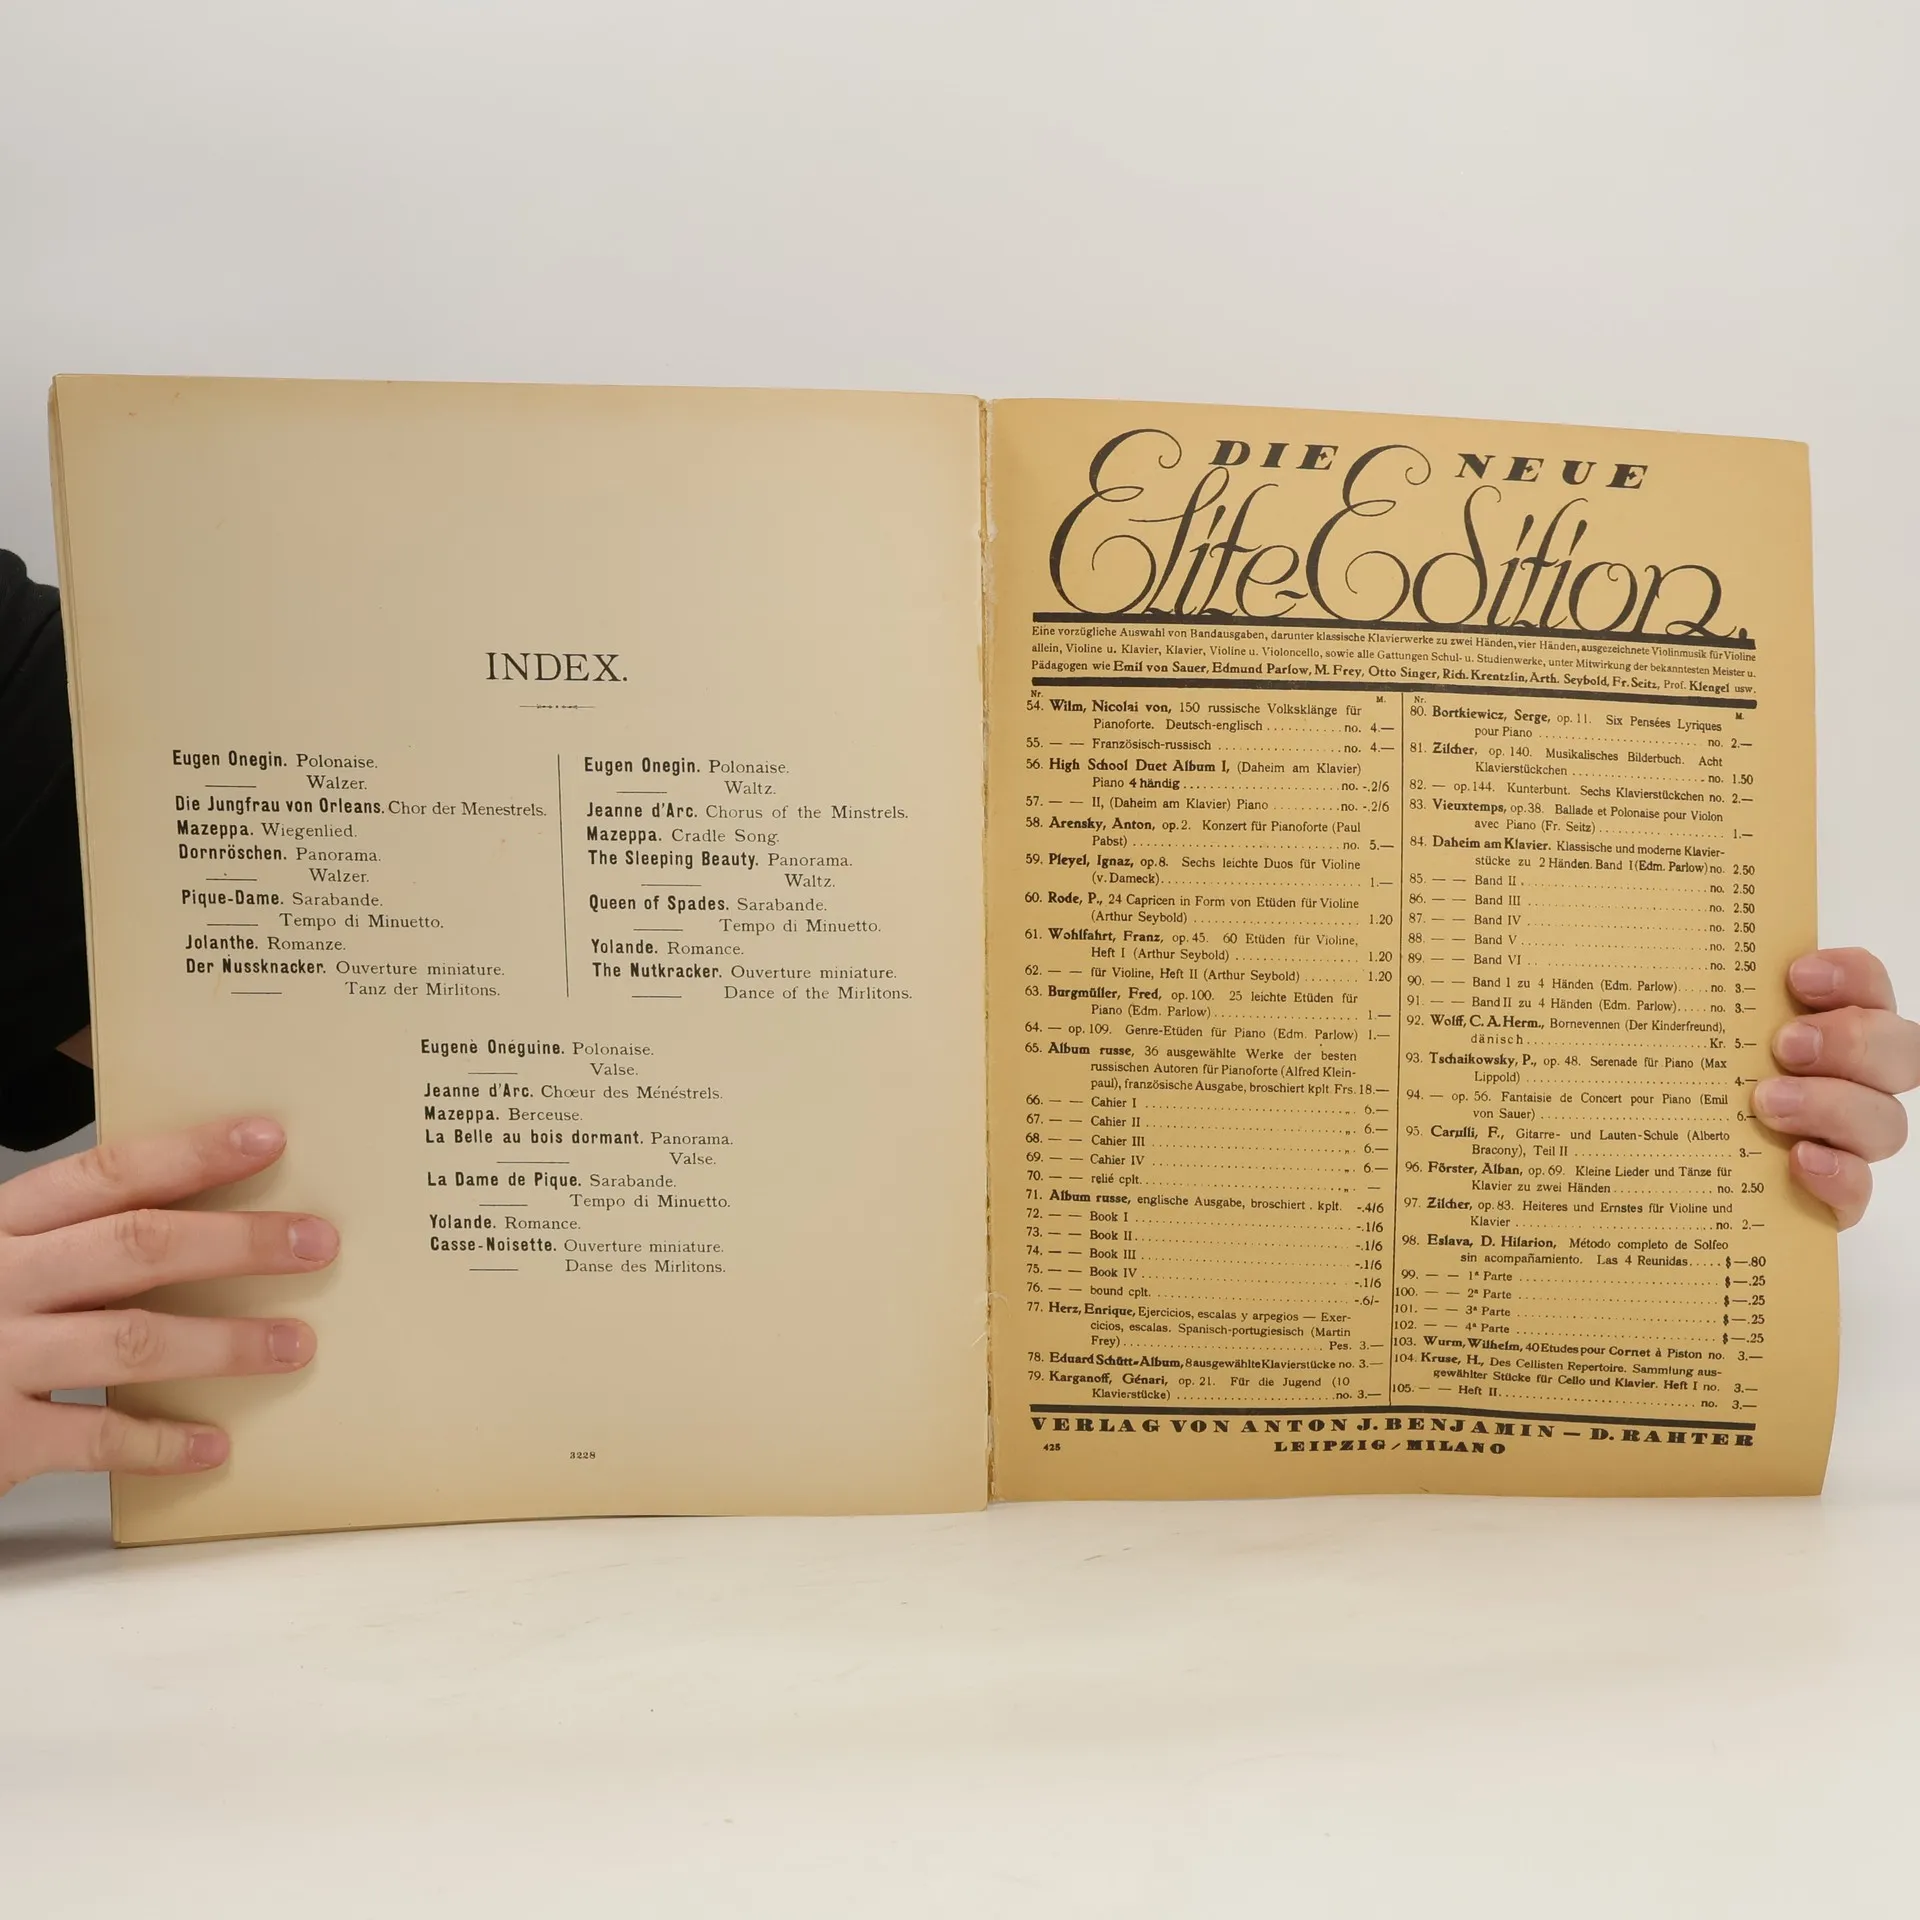 INDEX.
Eugen Onegin. Polonaise.
Walzer.
Die Jungfrau von Orleans. Chor der Menestrels.
Mazeppa. Wiegenlied.
Dornröschen. Panorama.
Walzer.
Pique-Dame. Sarabande.
Tempo di Minuetto.
Jolanthe. Romanze.
Der Nussknacker. Ouverture miniature.
Tanz der Mirlitons.
Eugen Onegin. Polonaise.
Waltz.
Jeanne d'Arc. Chorus of the Minstrels.
Mazeppa. Cradle Song.
The Sleeping Beauty. Panorama.
Waltz.
Queen of Spades. Sarabande.
Tempo di Minuetto.
Yolande. Romance.
The Nutkracker. Ouverture miniature.
Dance of the Mirlitons.
Eugenè Onéguine. Polonaise.
Valse.
Jeanne d'Arc. Chœur des Ménéstrels.
Mazeppa. Berceuse.
La Belle au bois dormant. Panorama.
Valse.
La Dame de Pique. Sarabande.
Tempo di Minuetto.
Yolande. Romance.
Casse-Noisette. Ouverture miniature.
Danse des Mirlitons.
3228
DIE NEUE
Elite-Edition.
Eine vorzügliche Auswahl von Bandausgaben, darunter klassische Klavierwerke zu zwei Händen, vier Händen, ausgezeichnete Violinmusik für Violine
allein, Violine u. Klavier, Klavier, Violine u. Violoncello, sowie alle Gattungen Schul- u. Studienwerke, unter Mitwirkung der bekanntesten Meister u.
Pädagogen wie Emil von Sauer, Edmund Parlow, M. Frey, Otto Singer, Rich. Krentzlin, Arth. Seybold, Fr. Seitz, Prof. Klengel usw.
Nr. M.
54. Wilm, Nicolai von, 150 russische Volksklänge für
Pianoforte. Deutsch-englisch . . . . . . . . . . no. 4.—
55. — — Französisch-russisch . . . . . . . . . . no. 4.—
56. High School Duet Album I, (Daheim am Klavier)
Piano 4 händig . . . . . . . . . . no. -.2/6
57. — — II, (Daheim am Klavier) Piano . . . . . no. -.2/6
58. Arensky, Anton, op. 2. Konzert für Pianoforte (Paul
Pabst) . . . . . . . . . . no. 5.—
59. Pleyel, Ignaz, op. 8. Sechs leichte Duos für Violine
(v. Dameck) . . . . . . . . . . 1.—
60. Rode, P., 24 Capricen in Form von Etüden für Violine
(Arthur Seybold) . . . . . . . . . . 1.20
61. Wohlfahrt, Franz, op. 45. 60 Etüden für Violine,
Heft I (Arthur Seybold) . . . . . . . . . . 1.20
62. — — für Violine, Heft II (Arthur Seybold) . . . . . 1.20
63. Burgmüller, Fred, op. 100. 25 leichte Etüden für
Piano (Edm. Parlow) . . . . . . . . . . 1.—
64. — op. 109. Genre-Etüden für Piano (Edm. Parlow) 1.—
65. Album russe, 36 ausgewählte Werke der besten
russischen Autoren für Pianoforte (Alfred Klein-
paul), französische Ausgabe, broschiert kplt. Frs. 18.—
66. — — Cahier I . . . . . . . . . . „ 6.—
67. — — Cahier II . . . . . . . . . . „ 6.—
68. — — Cahier III . . . . . . . . . . „ 6.—
69. — — Cahier IV . . . . . . . . . . „ 6.—
70. — — relié cplt. . . . . . . . . . . „ —
71. Album russe, englische Ausgabe, broschiert . kplt. -.4/6
72. — — Book I . . . . . . . . . . -.1/6
73. — — Book II . . . . . . . . . . -.1/6
74. — — Book III . . . . . . . . . . -.1/6
75. — — Book IV . . . . . . . . . . -.1/6
76. — — bound cplt. . . . . . . . . . . -.6/-
77. Herz, Enrique, Ejercicios, escalas y arpegios — Exer-
cicios, escalas. Spanisch-portugiesisch (Martin
Frey) . . . . . . . . . . Pes. 3.—
78. Eduard Schütt-Album, 8 ausgewählte Klavierstücke no. 3.—
79. Karganoff, Génari, op. 21. Für die Jugend (10
Klavierstücke) . . . . . . . . . . no. 3.—
Nr. M.
80. Bortkiewicz, Serge, op. 11. Six Pensées Lyriques
pour Piano . . . . . . . . . . no. 2.—
81. Zilcher, op. 140. Musikalisches Bilderbuch. Acht
Klavierstückchen . . . . . . . . . . no. 1.50
82. — op. 144. Kunterbunt. Sechs Klavierstückchen no. 2.—
83. Vieuxtemps, op. 38. Ballade et Polonaise pour Violon
avec Piano (Fr. Seitz) . . . . . . . . . . 1.—
84. Daheim am Klavier. Klassische und moderne Klavier-
stücke zu 2 Händen. Band I (Edm. Parlow) no. 2.50
85. — — Band II . . . . . . . . . . no. 2.50
86. — — Band III . . . . . . . . . . no. 2.50
87. — — Band IV . . . . . . . . . . no. 2.50
88. — — Band V . . . . . . . . . . no. 2.50
89. — — Band VI . . . . . . . . . . no. 2.50
90. — — Band I zu 4 Händen (Edm. Parlow) . . . . . no. 3.—
91. — — Band II zu 4 Händen (Edm. Parlow) . . . . . no. 3.—
92. Wolff, C. A. Herm., Bornevennen (Der Kinderfreund),
dänisch . . . . . . . . . . Kr. 5.—
93. Tschaikowsky, P., op. 48. Serenade für Piano (Max
Lippold) . . . . . . . . . . 4.—
94. — op. 56. Fantaisie de Concert pour Piano (Emil
von Sauer) . . . . . . . . . . 6.—
95. Carulli, F., Gitarre- und Lauten-Schule (Alberto
Bracony), Teil II . . . . . . . . . . 3.—
96. Förster, Alban, op. 69. Kleine Lieder und Tänze für
Klavier zu zwei Händen . . . . . . . . . . no. 2.50
97. Zilcher, op. 83. Heiteres und Ernstes für Violine und
Klavier . . . . . . . . . . no. 2.—
98. Eslava, D. Hilarion, Método completo de Solfeo
sin acompañamiento. Las 4 Reunidas . . . . . $ —.80
99. — — 1ª Parte . . . . . . . . . . $ —.25
100. — — 2ª Parte . . . . . . . . . . $ —.25
101. — — 3ª Parte . . . . . . . . . . $ —.25
102. — — 4ª Parte . . . . . . . . . . $ —.25
103. Wurm, Wilhelm, 40 Etudes pour Cornet à Piston no. 3.—
104. Kruse, H., Des Cellisten Repertoire. Sammlung aus-
gewählter Stücke für Cello und Klavier. Heft I no. 3.—
105. — — Heft II . . . . . . . . . . no. 3.—
VERLAG VON ANTON J. BENJAMIN — D. RAHTER
425 LEIPZIG / MILANO